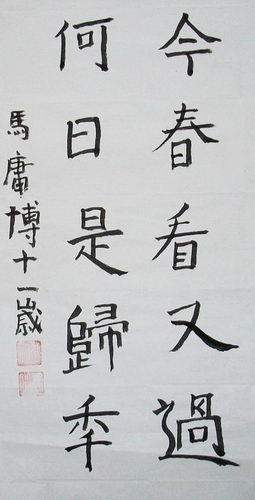 今春看又過
何日是歸秊
馬庸博十一歲